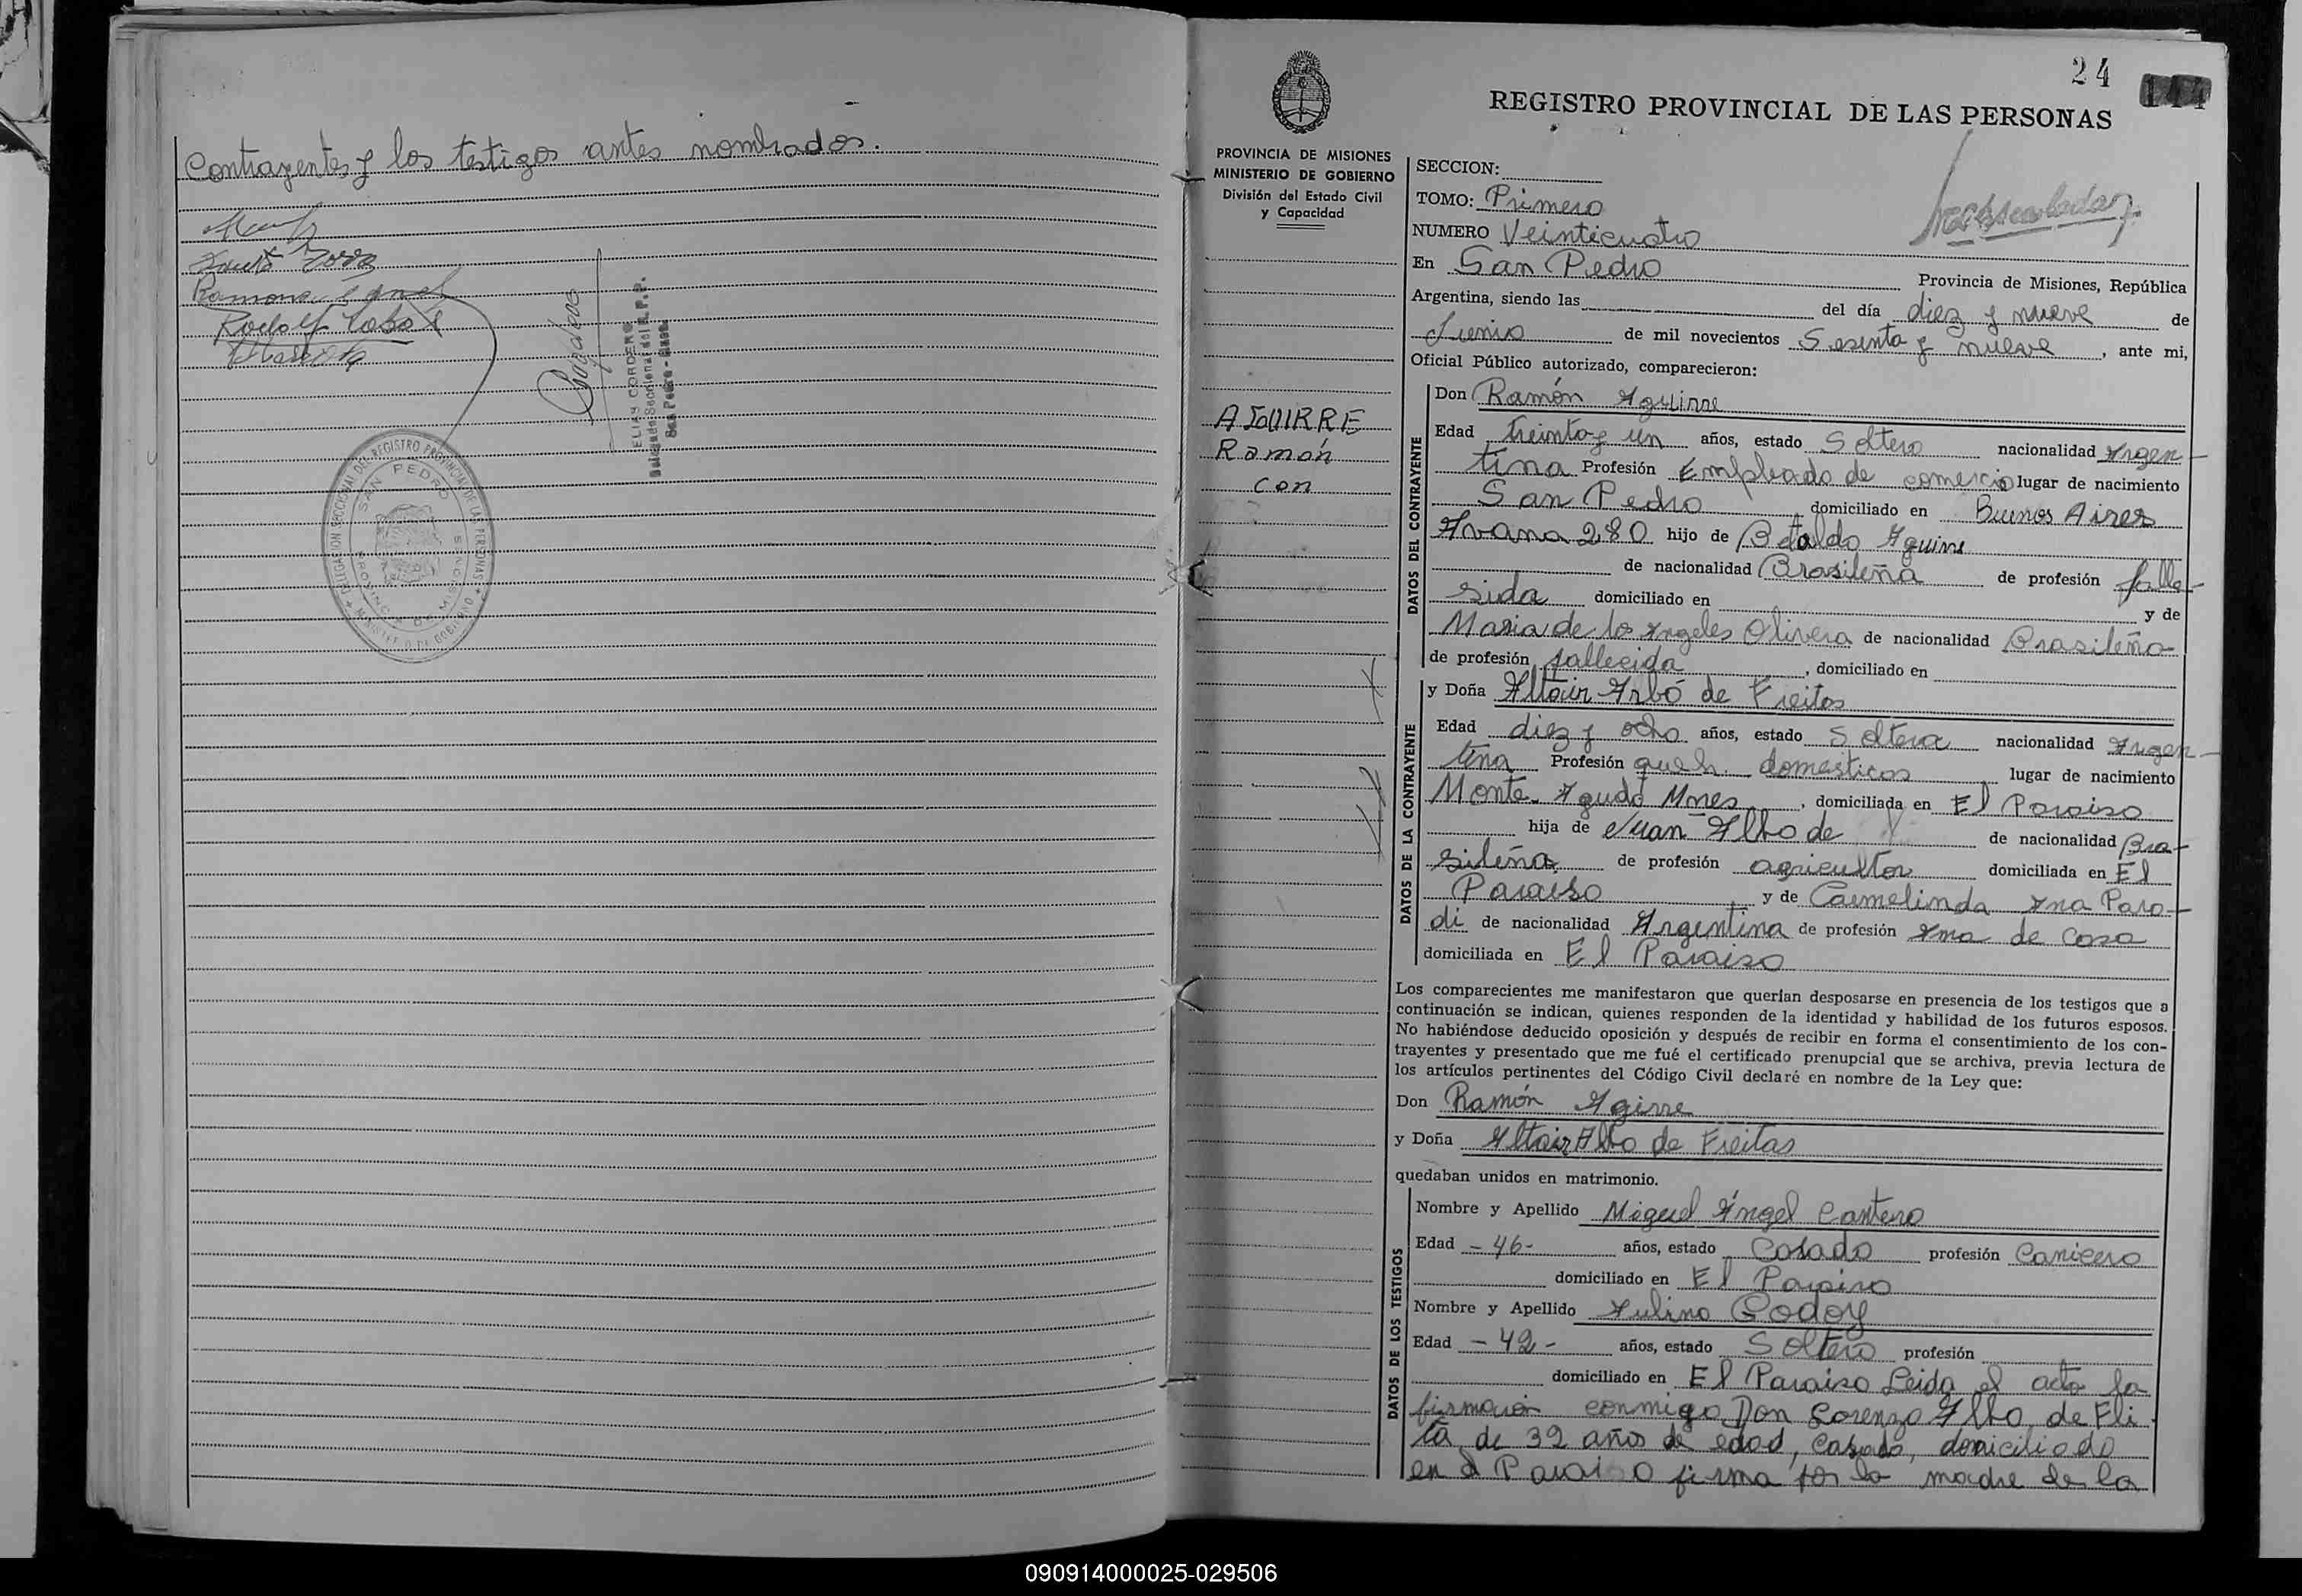 Contrayentes y los testigos antes nombrados.
ELIAS CORDERO
Delegado Seccional del R.P.P.
San Pedro - Mnes.
DELEGACION SECCIONAL DEL REGISTRO PROVINCIAL DE LAS PERSONAS
SAN PEDRO
PROVINCIA DE MISIONES
MINISTERIO DE GOBIERNO
24
144
REGISTRO PROVINCIAL DE LAS PERSONAS
PROVINCIA DE MISIONES
MINISTERIO DE GOBIERNO
División del Estado Civil
y Capacidad
AGUIRRE
Ramón
con
SECCION:
TOMO: Primero
NUMERO Veinticuatro
En San Pedro Provincia de Misiones, República
Argentina, siendo las del día diez y nueve de
Junio de mil novecientos Sesenta y nueve, ante mi,
Oficial Público autorizado, comparecieron:
DATOS DEL CONTRAYENTE
Don Ramón Aguirre
Edad treinta y un años, estado Soltero nacionalidad Argen-
tina Profesión Empleado de comercio lugar de nacimiento
San Pedro domiciliado en Buenos Aires
Avana 280 hijo de Aguirre
de nacionalidad Brasileña de profesión falle-
sida domiciliado en y de
Maria de los Angeles Olivera de nacionalidad Brasileña
de profesión fallecida, domiciliado en
DATOS DE LA CONTRAYENTE
y Doña Altair Arbó de Freitas
Edad diez y ocho años, estado Soltera nacionalidad Argen-
tina Profesión queh. domesticos lugar de nacimiento
Monte Agudo Mnes, domiciliada en El Paraiso
hija de Juan Albo de de nacionalidad Bra-
sileña de profesión agricultor domiciliada en El
Paraiso y de Carmelinda Ana Paro-
di de nacionalidad Argentina de profesión Ama de Casa
domiciliada en El Paraiso
Los comparecientes me manifestaron que querían desposarse en presencia de los testigos que a
continuación se indican, quienes responden de la identidad y habilidad de los futuros esposos.
No habiéndose deducido oposición y después de recibir en forma el consentimiento de los con-
trayentes y presentado que me fué el certificado prenupcial que se archiva, previa lectura de
los artículos pertinentes del Código Civil declaré en nombre de la Ley que:
Don Ramón Agirre
y Doña Altair Albo de Freitas
quedaban unidos en matrimonio.
DATOS DE LOS TESTIGOS
Nombre y Apellido Miguel Ángel Cantero
Edad -46- años, estado Casado profesión Carnicero
domiciliado en El Paraiso
Nombre y Apellido Julino Godoy
Edad -42- años, estado Soltero profesión
domiciliado en El Paraiso Leida el acta la
firmaron conmigo Don Lorenzo Albo de Fli
ta de 32 años de edad, Casado, domiciliado
en el Paraiso firma por la madre de la
090914000025-029506